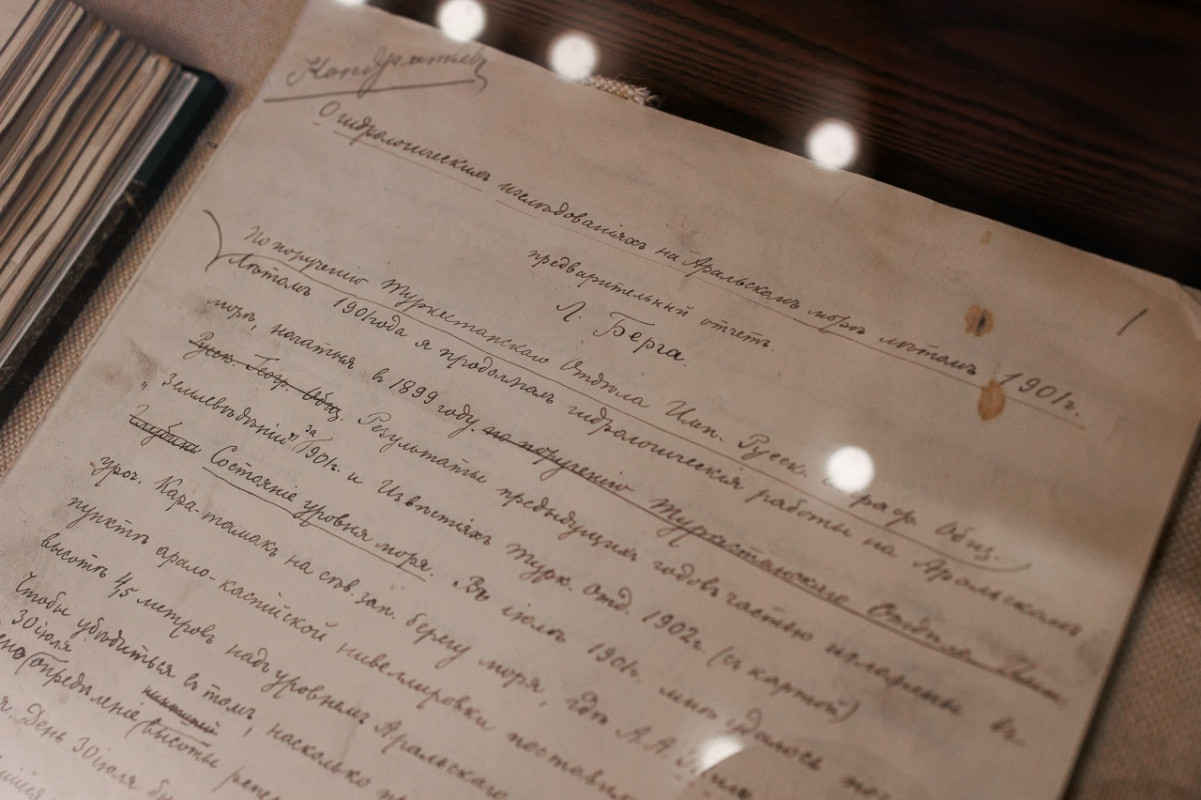 Кондратьев
О гидрологическихъ изслѣдованіяхъ на Аральскомъ морѣ лѣтомъ 1901 г.
1
предварительный отчетъ
Л. Берга.
По порученію Туркестанскаго Отдѣла Имп. Русск. Географ. Общ.
Лѣтомъ 1901 года я продолжалъ гидрологическія работы на Аральскомъ
морѣ, начатыя въ 1899 году, по порученію Туркестанскаго Отдѣла Имп.
Русск. Геогр. Общ. Результаты предыдущихъ годовъ частью изложены въ
„Землевѣдѣніи" за 1901 г. и Извѣстіяхъ Турк. Отд. 1902 г. (съ картой)
Глубины Состояніе уровня моря. Въ іюлѣ 1901 г. мнѣ удалось
уроч. Кара-тамакъ на сѣв. зап. берегу моря, гдѣ А.А.
пунктъ арало-каспійской нивеллировки
высотѣ 45 метровъ надъ уровнемъ Аральскаго
Чтобы убѣдиться въ томъ, насколько
30 іюля
опредѣленіе высоты
День 30 іюля